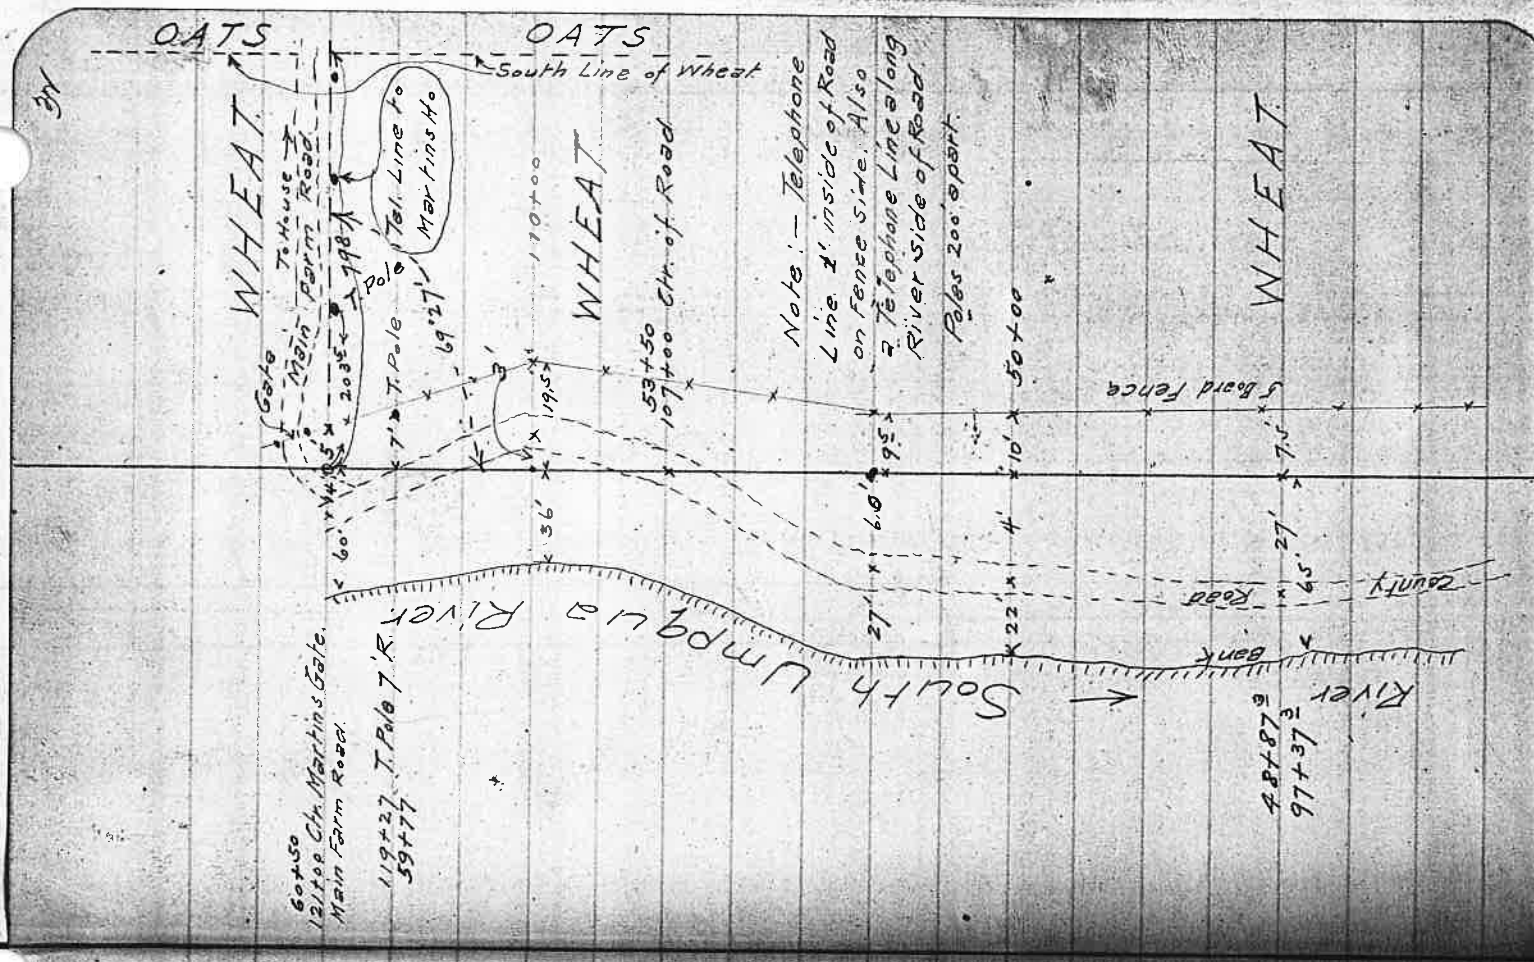 OATS
OATS
South Line of Wheat
WHEAT
To House
Main Farm Road
Gate
Tel. Line to
Martins Ho
798'
203.5
Pole
7' T. Pole
69°27'
3'
110+00
WHEAT
53+50
107+00 Ctr. of Road
19.5
36'
60'
Note:- Telephone
Line 1' inside of Road
on Fence side. Also
a Telephone Line along
River side of Road.
Poles 200' apart.
50+00
WHEAT
5 Board Fence
9.5
10'
7.5'
6.0'
4'
27'
27'
22'
65'
County
Road
Bank
River
South Umpqua River
48+87 3
97+37 3
60+50
121+00 Ctr. Martins Gate.
Main Farm Road.
119+27 T. Pole 7' R.
59+77